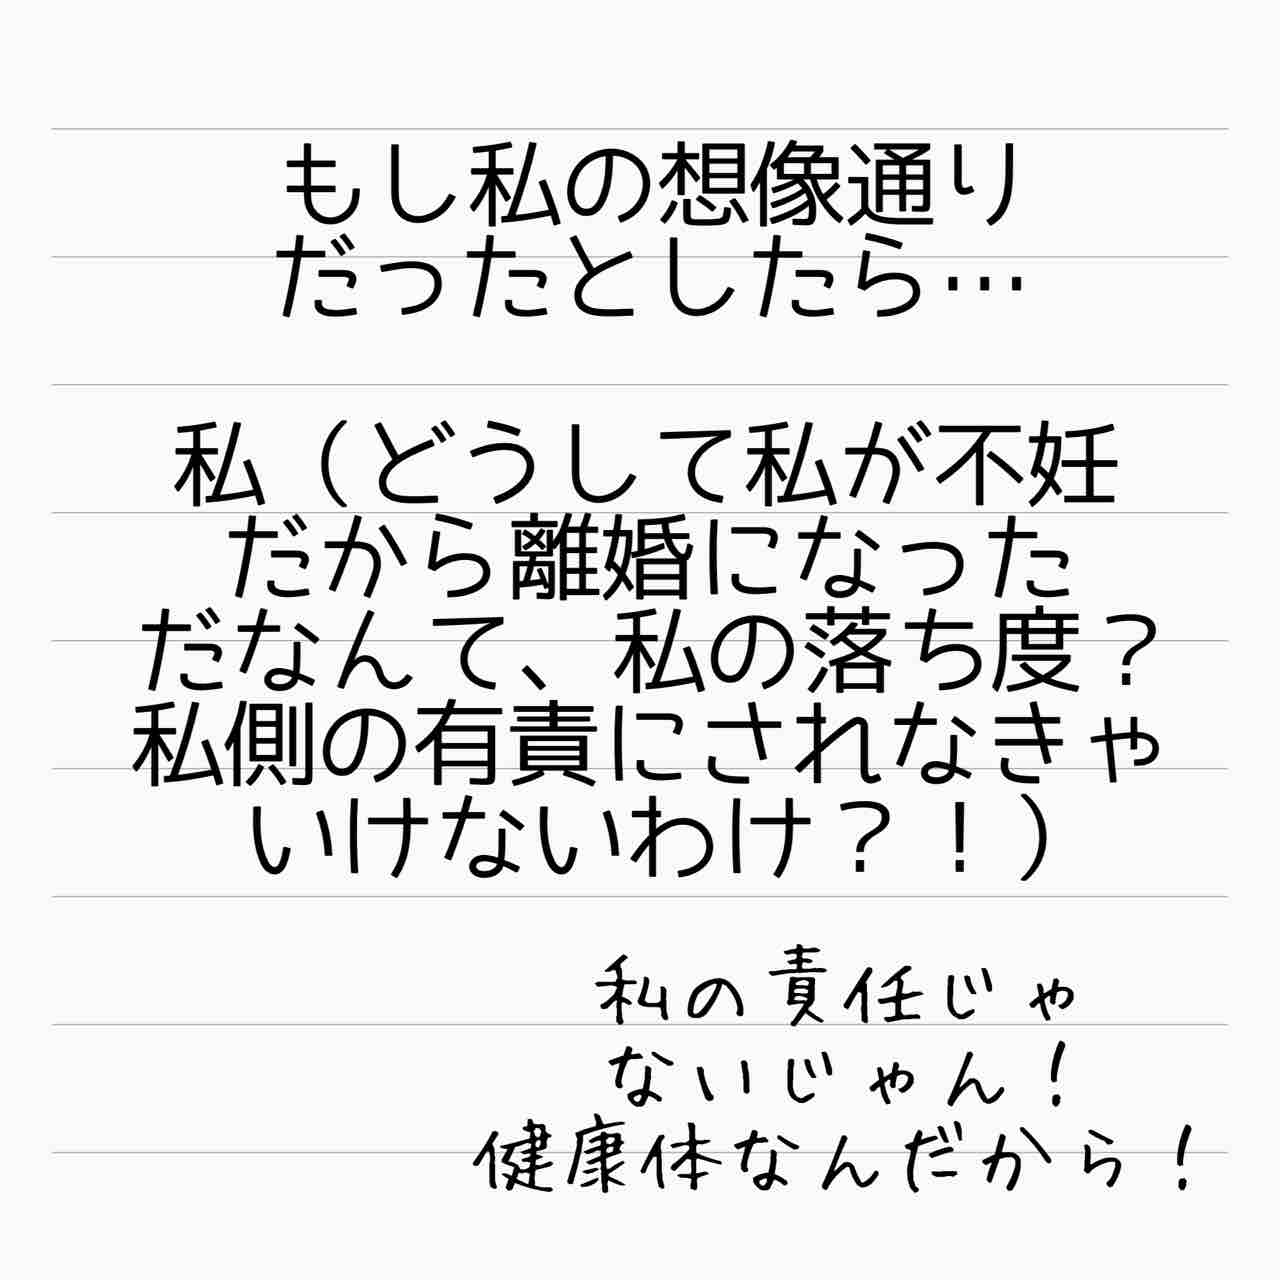 もし私の想像通り
だったとしたら…
私（どうして私が不妊
だから離婚になった
だなんて、私の落ち度？
私側の有責にされなきゃ
いけないわけ？！）
私の責任じゃ
ないじゃん！
健康体なんだから！